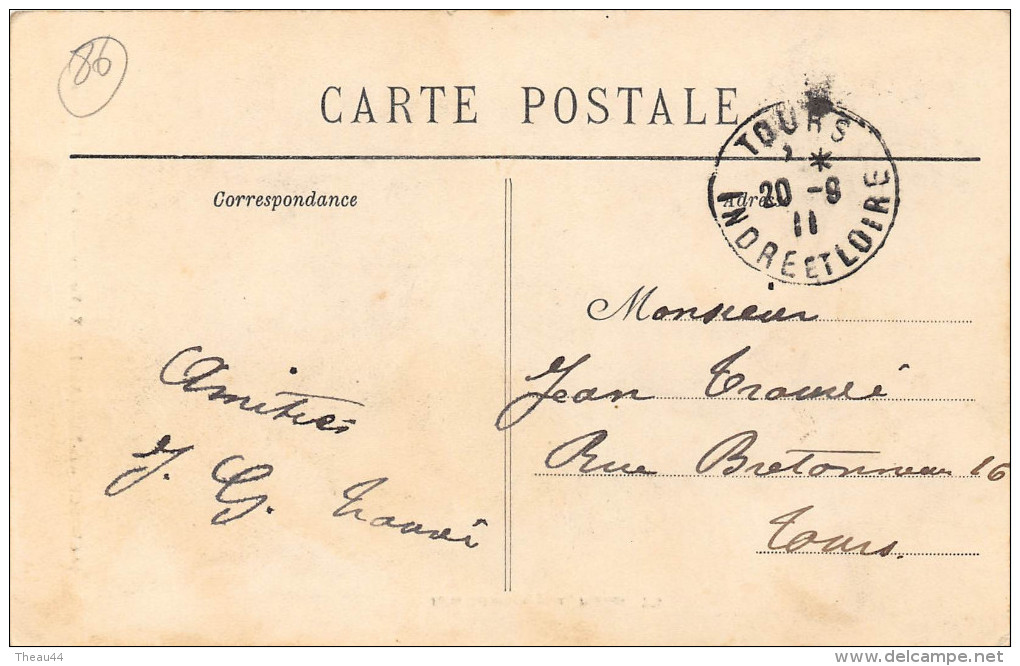 86
CARTE POSTALE
TOURS
*
20 -9
11
INDRE ET LOIRE
Correspondance
Adresse
Monsieur
Jean
Rue Bretonneau 16
Tours.
Amitiés
J. G.
Theau44
delcampe.net